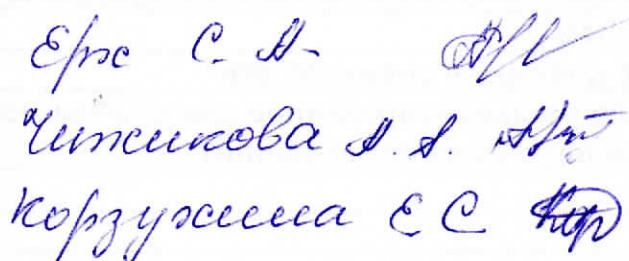 Ерж С. А.
Чижикова А. А.
Корзухина Е С